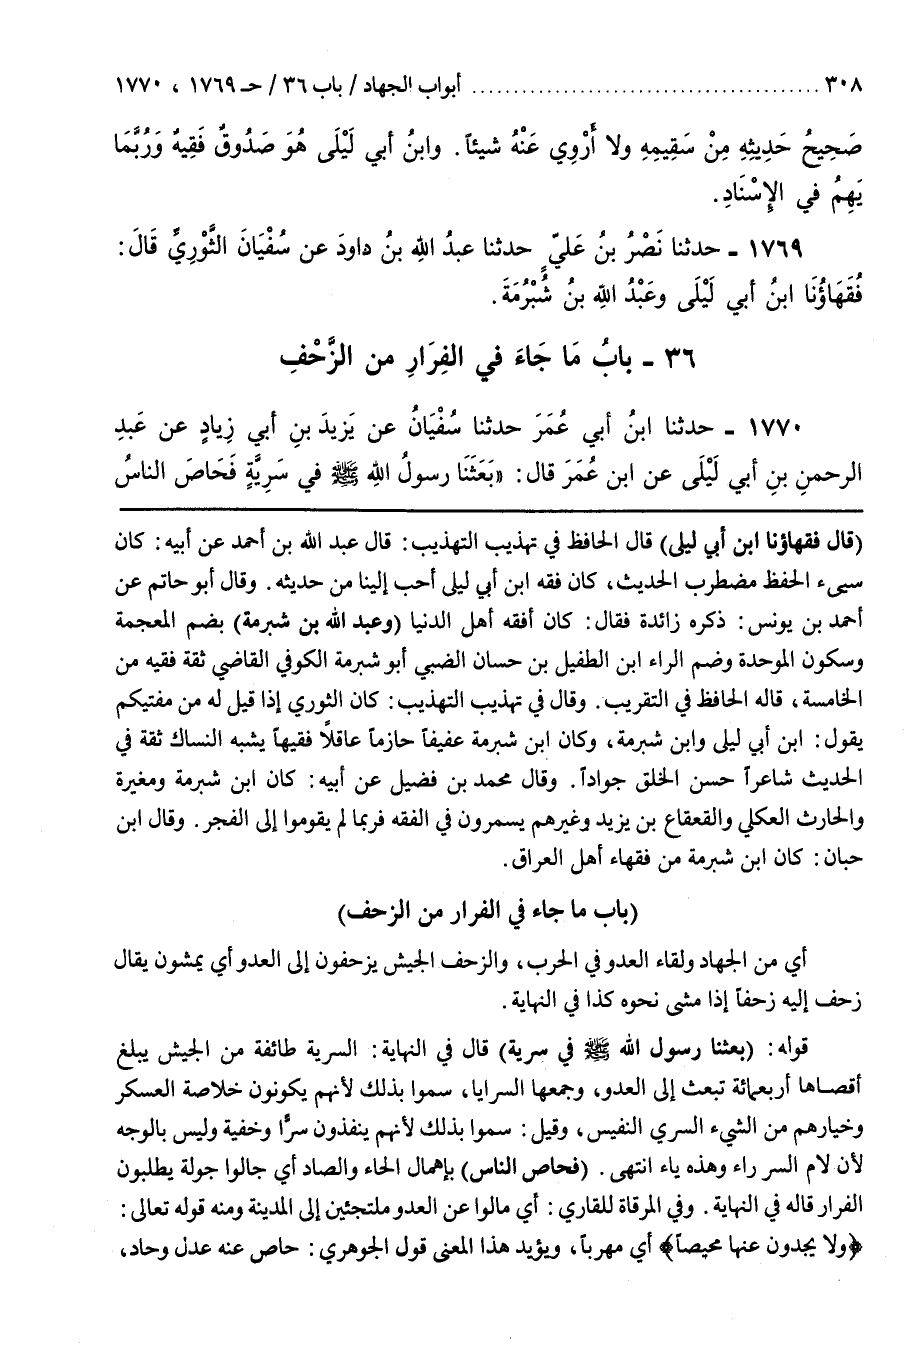 ٣٠٨ ........................................ أبواب الجهاد / باب ٣٦ / حـ ١٧٦٩ ، ١٧٧٠
صَحِيحُ حَدِيثِهِ مِنْ سَقِيمِهِ ولا أَرْوِي عَنْهُ شيئاً. وابنُ أبي لَيْلَى هُوَ صَدُوقٌ فَقِيهٌ وَرُبَّمَا
يَهِمُ في الإِسْنَادِ.
١٧٦٩ ـ حدثنا نَصْرُ بنُ عَليٍّ حدثنا عبدُ اللهِ بنُ داودَ عن سُفْيَانَ الثَّوْرِيِّ قَالَ:
فُقَهَاؤُنَا ابنُ أبي لَيْلَى وعَبْدُ اللهِ بنُ شُبْرُمَةَ.
٣٦ ـ بابُ مَا جَاءَ في الفِرَارِ من الزَّحْفِ
١٧٧٠ ـ حدثنا ابنُ أبي عُمَرَ حدثنا سُفْيَانُ عن يَزِيدَ بنِ أبي زِيادٍ عن عَبدِ
الرحمنِ بنِ أبي لَيْلَى عن ابن عُمَرَ قال: «بَعَثَنَا رسولُ اللهِ ﷺ في سَرِيَّةٍ فَحَاصَ الناسُ
(قال فقهاؤنا ابن أبي ليلى) قال الحافظ في تهذيب التهذيب: قال عبد الله بن أحمد عن أبيه: كان
سيىء الحفظ مضطرب الحديث، كان فقه ابن أبي ليلى أحب إلينا من حديثه. وقال أبو حاتم عن
أحمد بن يونس: ذكره زائدة فقال: كان أفقه أهل الدنيا (وعبد الله بن شبرمة) بضم المعجمة
وسكون الموحدة وضم الراء ابن الطفيل بن حسان الضبي أبو شبرمة الكوفي القاضي ثقة فقيه من
الخامسة، قاله الحافظ في التقريب. وقال في تهذيب التهذيب: كان الثوري إذا قيل له من مفتيكم
يقول: ابن أبي ليلى وابن شبرمة، وكان ابن شبرمة عفيفاً حازماً عاقلاً فقيهاً يشبه النساك ثقة في
الحديث شاعراً حسن الخلق جواداً. وقال محمد بن فضيل عن أبيه: كان ابن شبرمة ومغيرة
والحارث العكلي والقعقاع بن يزيد وغيرهم يسمرون في الفقه فربما لم يقوموا إلى الفجر. وقال ابن
حبان: كان ابن شبرمة من فقهاء أهل العراق.
(باب ما جاء في الفرار من الزحف)
أي من الجهاد ولقاء العدو في الحرب، والزحف الجيش يزحفون إلى العدو أي يمشون يقال
زحف إليه زحفاً إذا مشى نحوه كذا في النهاية.
قوله: (بعثنا رسول الله ﷺ في سرية) قال في النهاية: السرية طائفة من الجيش يبلغ
أقصاها أربعمائة تبعث إلى العدو، وجمعها السرايا، سموا بذلك لأنهم يكونون خلاصة العسكر
وخيارهم من الشيء السري النفيس، وقيل: سموا بذلك لأنهم ينفذون سراً وخفية وليس بالوجه
لأن لام السر راء وهذه ياء انتهى. (فحاص الناس) بإهمال الحاء والصاد أي جالوا جولة يطلبون
الفرار قاله في النهاية. وفي المرقاة للقاري: أي مالوا عن العدو ملتجئين إلى المدينة ومنه قوله تعالى:
﴿ولا يجدون عنها محيصاً﴾ أي مهرباً، ويؤيد هذا المعنى قول الجوهري: حاص عنه عدل وحاد،